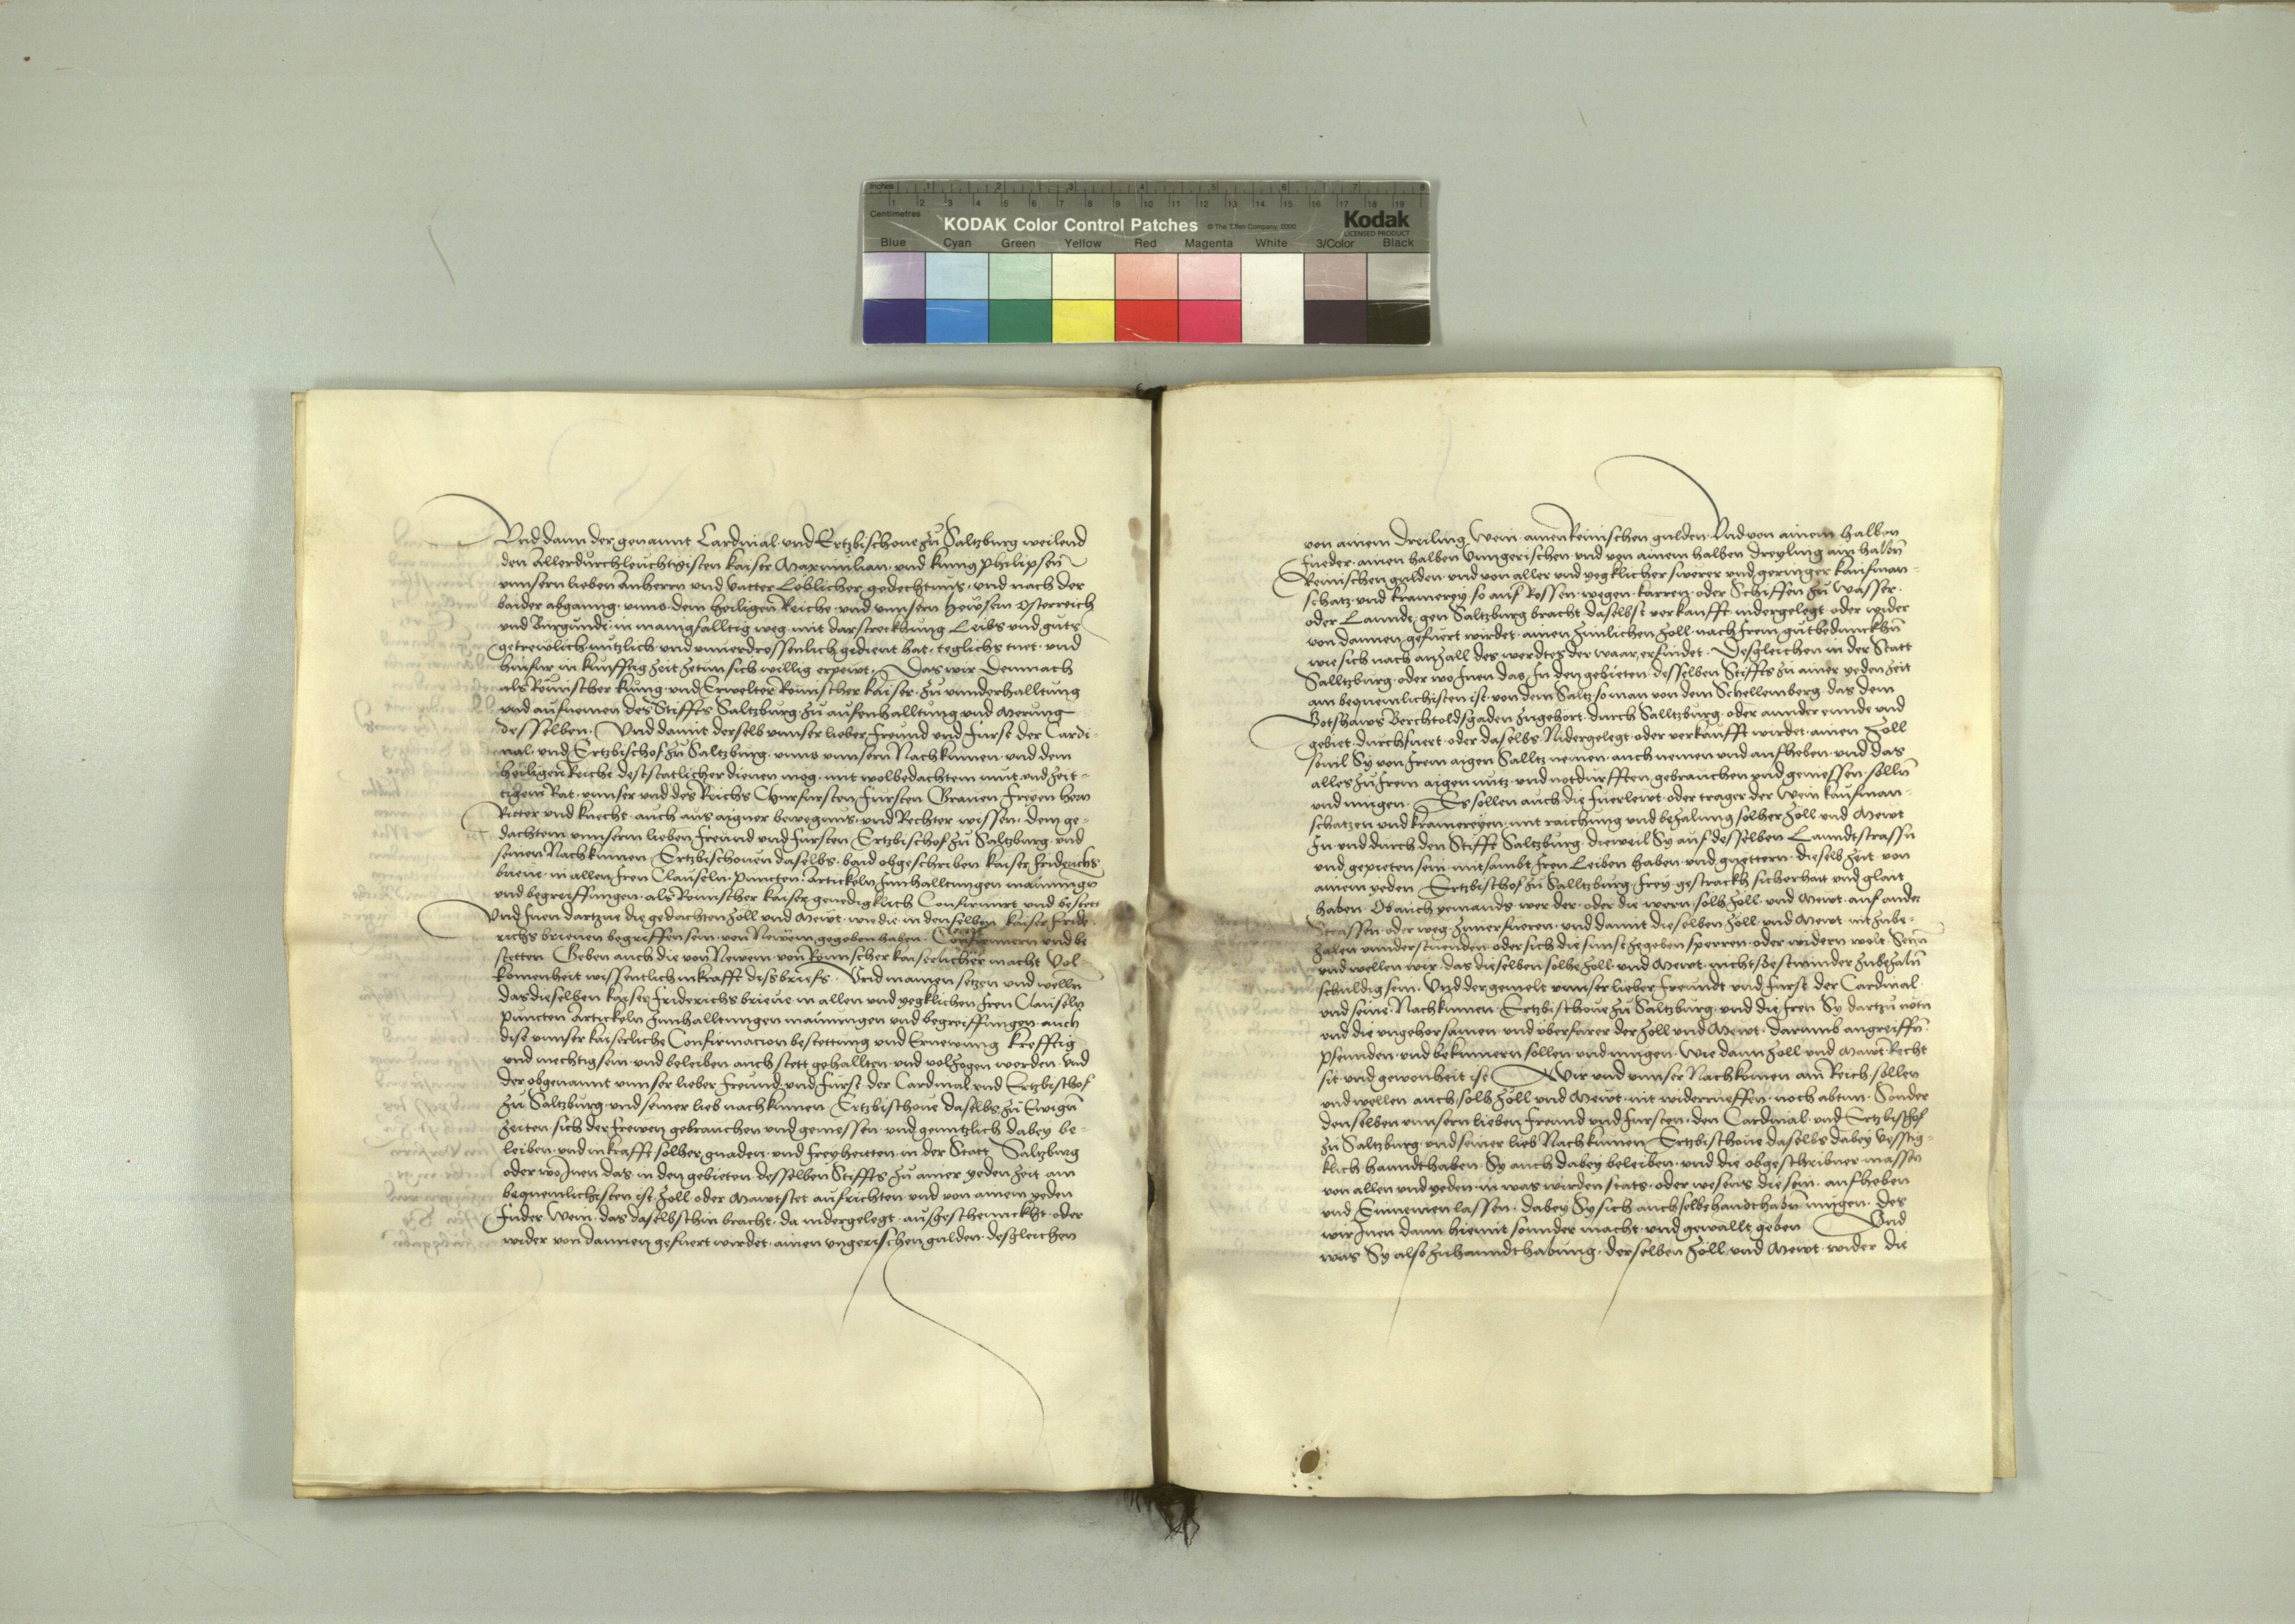 Inches 1 2 3 4 5 6 7 8
Centimetres 1 2 3 4 5 6 7 8 9 10 11 12 13 14 15 16 17 18 19
KODAK Color Control Patches © The Tiffen Company, 2000 Kodak
LICENSED PRODUCT
Blue Cyan Green Yellow Red Magenta White 3/Color Black
Vnd dann der genannt Cardinal und Ertzbischoue zu Saltzburg weilend
den Allerdurchleuchtigisten kaiser Maximilian und kunig Philipsen
unnsern lieben Anherrn und Vatter Loblicher gedechtnus, und nach der
baider abganng unns dem heiligen Reiche und unnsern hewsern Osterreich
und Burgundi in manigfalltig weg mit darstreckhung Leibs und guts
getrewlich nutzlich und unuerdrossenlich gedient hat, teglichs tuet und
hinfur in kunfftig zeit zetun sich willig erpewt, Das wir Demnach
als Romischer kunig und Erwelter Romischer kaiser zu unnderhalltung
und aufnemen des Stiffts Saltzburg zu aufenhalltung und Merung
desselben. Und damit derselb unnser lieber freund und furst der Cardi-
nal und Ertzbischof zu Saltzburg unns unnsern Nachkumen und dem
heiligen Reiche dest statlicher dienen mog, mit wolbedachtem mut und zeit-
tigem Rat, unnser und des Reichs Churfursten fursten Grauen freyen hern
Ritter und knecht, auch aus aigner bewegnus, und Rechter wissen, dem ge-
dachtem unnserm lieben freund und fursten Ertzbischof zu Saltzburg und
seinen Nachkumen Ertzbischouen daselbs, baid obgeschriben kaiser friderichs
brieue in allen jren Clauseln puncten Artickeln Innhalltungen maynungen
und begreiffungen, als Romischer kaiser genedigklich Confirmirt und bestett
Vnd Jnen dartzue die gedachten Zoll und Mewt, wie die in denselben kaiser Fride-
richs brieuen begriffen sein, von Newem gegeben haben, Confirmieren und be-
stetten Geben auch die von Newem von Romischer kaiserlicher macht Vol-
komenheit wissentlich in krafft diss briefs. Und mainen setzen und wellen
das dieselben kaiser friderichs brieue in allen und yegklichen jren Clauseln
puncten Artickeln Innhalltungen maynungen und begreiffungen, auch
dise unnser kaiserliche Confirmacion bestettung und Ernewung krefftig
und mechtig sein und beleiben auch stett gehallten und volzogen werden Vnd
der obgenannt unnser lieber freund und furst der Cardinal und Ertzbischof
zu Saltzburg und seiner lieb nachkumen Ertzbischoue daselbs zu Ewigen
zeiten sich der frewen gebrauchen und geniessen und genntzlich dabey be-
leiben und in krafft solher gnaden und freyheitten in der Statt Saltzburg
oder wo jnen das in den gebieten desselben Stiffts zu ainer yeden zeit am
bequemlichisten ist, Zoll oder Mawtstet aufrichten und von ainem yeden
fuder Wein, das daselbsthin bracht, da nidergelegt, ausgeschennckht oder
wider von dannen gefuert wirdet, ainen ungerischen gulden, dessgleichen
von ainem Dreiling Wein, ainen Reinischen gulden, Vnd von ainem halben
fueder, ainen halben Vnngerischen und von ainem halben Dreyling ain halben
Reinischen gulden, und von aller und yegklicher swerer und geringer kaufman-
schatz und kramerey, so auf Rossen wegen karren oder Schiffen zu Wasser
oder Lannde gen Saltzburg bracht, daselbst verkaufft, nidergelegt oder wider
von dannen gefuert wirdet, ainen zimlichen Zoll nach jrem gutbedunckhen
wie sich nach anzall des werdtes der waar erfindet. Dessgleichen in der Statt
Salltzburg, oder wo jnen das in den gebieten desselben Stiffts zu ainer yeden zeit
am bequemlichisten ist, von dem Saltz, so man von dem Schellemberg, das dem
Gotshaws Berchtoldsgaden zugehort, durch Salltzburg, oder annder ennde und
gebiet durchfuert, oder daselbs Nidergelegt oder verkaufft wirdet, ainen Zoll
souil Sy von jrem aigen Salltz nemen, auch nemen und aufheben, und das
alles zu jrem aigen nutz und notdurfften gebrauchen und geniessen sollen
und mugen. Es sollen auch die fuerlewt oder trager der Wein kaufman-
schatzen und kramereyen, mit raichung und bezalung solher Zoll und Mewt
Jn und durch den Stifft Saltzburg, dieweil Sy auf desselben Lanndtstrassen
und gepieten sein, mitsambt jren Leiben haben und guettern, dieselb zeit von
ainem yeden Ertzbischof zu Salltzburg, frey gestrackh sicherhait und glait
haben. Ob auch yemands, wer der oder die wern, solh Zoll und Mewt auf ander
Strassen oder weg zuuerfueren, und damit dieselben Zoll und Mewt nit zube-
zalen unnderstuenden, oder sich die sunst zegeben sperren oder widern wolt, Setzen
und wellen wir, das dieselben solhe Zoll und Mewt, nichtsdestminder zubezaln
schuldig sein. Vnd der gemelt unnser lieber freundt und furst der Cardinal
und seine Nachkumen Ertzbischoue zu Saltzburg, und die jren Sy dartzu noten
und die ungehorsamen und uberfarer der Zoll und Mewt, darumb angreiffen
pfennden und bekumern sollen und mugen, Wie dann Zoll und Mawt Recht
sit und gewonheit ist Wir und unnser Nachkomen am Reich sollen
und wellen auch solh Zoll und Mewt nit widerrueffen noch abtun, Sonder
denselben unnsern lieben freund und fursten, den Cardinal und Ertzbischof
zu Saltzburg und seiner lieb Nachkumen Ertzbischoue daselbs dabey vesstig-
klich hanndthaben, Sy auch dabey beleiben und die obgeschribner massen
von allen und yeden, in was wirden stats oder wesens die sein, aufheben
und Einnemen lassen, dabey Sy sich auch selbs handthaben mugen, des
wir Jnen dann hiemit sonnder macht und gewallt geben Vnd
was Sy also zuhanndthabung derselben Zoll und Mewt wider die